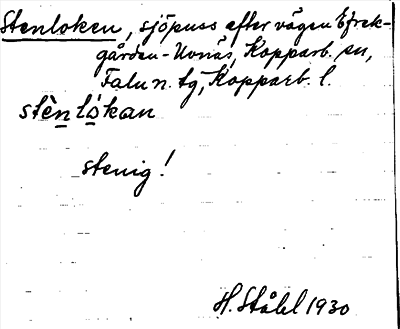 Stenloken, sjöpuss efter vägen Efrek-
gården-Uvnäs, Kopparb. sn,
Falu n. tg, Kopparb. l.
stènlòkan
stenig!
H. Ståhl 1930